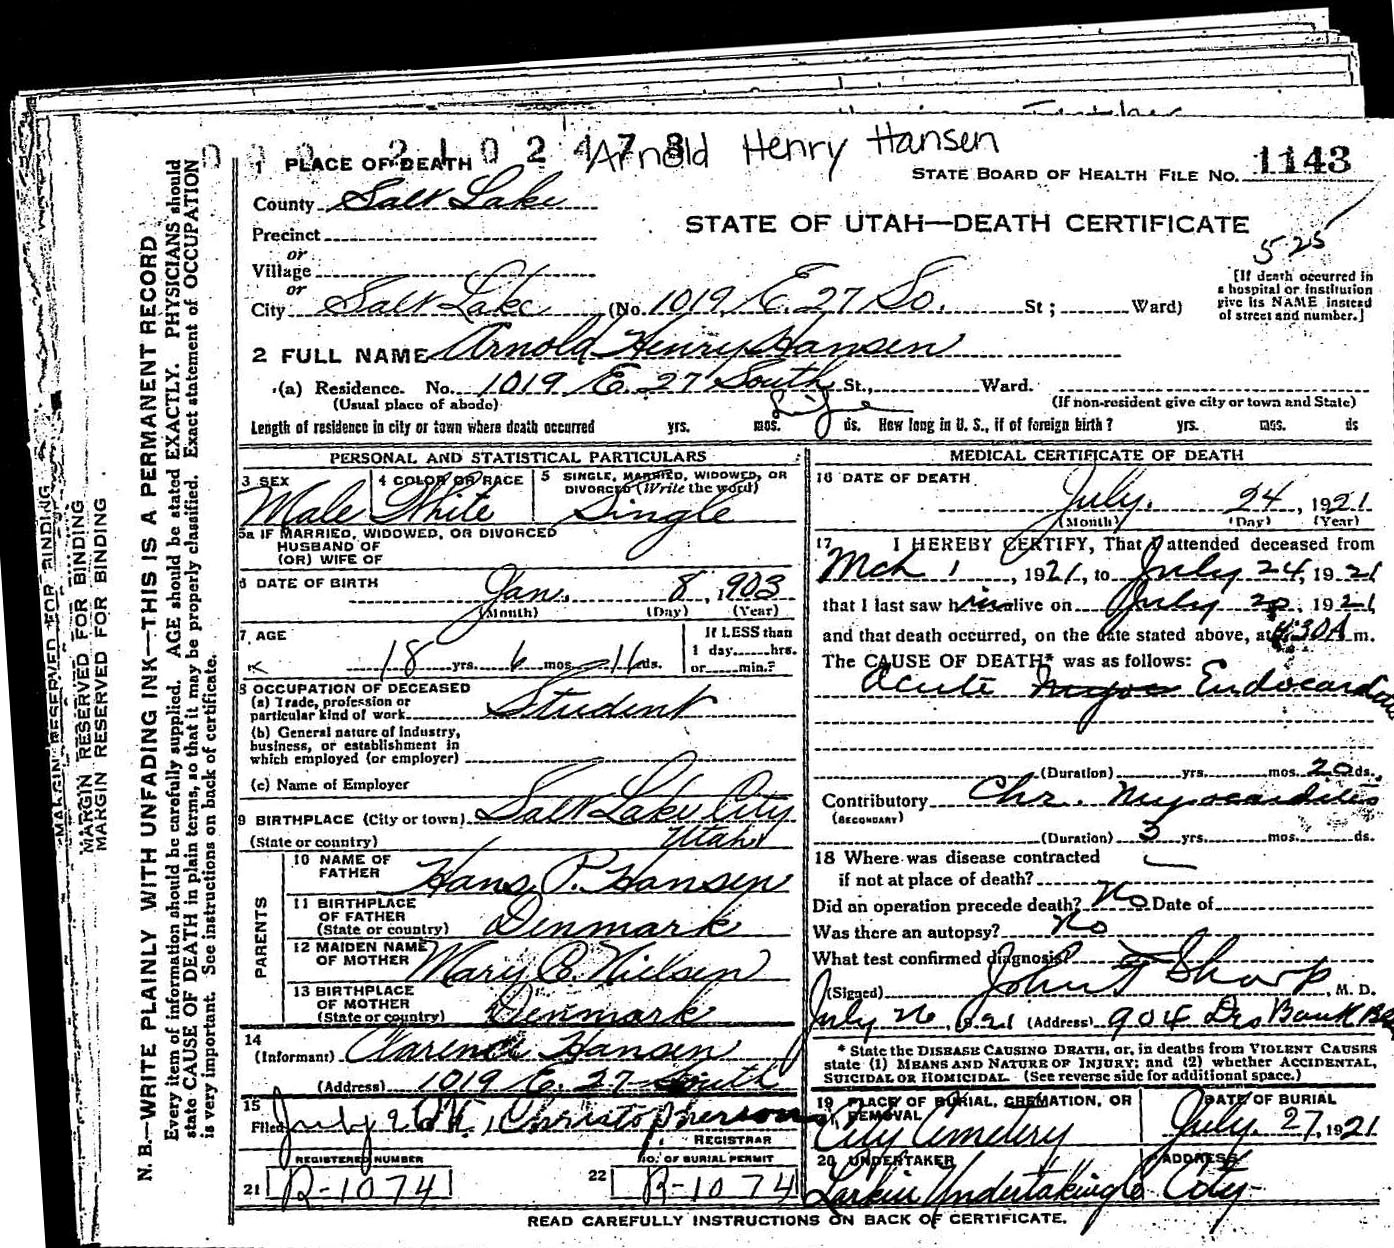 Arnold Henry Hansen
1 PLACE OF DEATH
STATE BOARD OF HEALTH FILE NO. 1143
County Salt Lake
STATE OF UTAH—DEATH CERTIFICATE
525
Precinct
or
Village
or
[If death occurred in
a hospital or institution
give its NAME instead
of street and number.]
City Salt Lake (No. 1019 E. 27 So. St; Ward)
2 FULL NAME Arnold Henry Hansen
(a) Residence. No. 1019 E. 27 South St., Ward.
(Usual place of abode) (If non-resident give city or town and State)
Life
Length of residence in city or town where death occurred yrs. mos. ds. How long in U. S., if of foreign birth? yrs. mos. ds
PERSONAL AND STATISTICAL PARTICULARS
3 SEX
Male
4 COLOR OR RACE
White
5 SINGLE, MARRIED, WIDOWED, OR
DIVORCED (Write the word)
Single
5a IF MARRIED, WIDOWED, OR DIVORCED
HUSBAND OF
(OR) WIFE OF
6 DATE OF BIRTH
Jan. 8, 1903
(Month) (Day) (Year)
7 AGE
18 yrs. 6 mos. 16 ds.
If LESS than
1 day......hrs.
or......min.?
8 OCCUPATION OF DECEASED
(a) Trade, profession or
particular kind of work Student
(b) General nature of Industry,
business, or establishment in
which employed (or employer)
(c) Name of Employer
9 BIRTHPLACE (City or town) Salt Lake City
(State or country) Utah
PARENTS
10 NAME OF
FATHER Hans P. Hansen
11 BIRTHPLACE
OF FATHER
(State or country) Denmark
12 MAIDEN NAME
OF MOTHER Mary C. Nielsen
13 BIRTHPLACE
OF MOTHER
(State or country) Denmark
14
(Informant) Clarence Hansen
(Address) 1019 E. 27 South
15
Filed July Christopherson
REGISTRAR
REGISTERED NUMBER
21 R-1074
NO. OF BURIAL PERMIT
22 R-1074
MEDICAL CERTIFICATE OF DEATH
16 DATE OF DEATH
July. 24, 1921
(Month) (Day) (Year)
17 I HEREBY CERTIFY, That I attended deceased from
Mch 1, 1921, to July 24, 1921
that I last saw him alive on July 20, 1921,
and that death occurred, on the date stated above, at 4:30A m.
The CAUSE OF DEATH* was as follows:
Acute Endocarditis
(Duration) yrs. mos. 20 ds.
Contributory Chr. Myocarditis
(SECONDARY)
(Duration) 3 yrs. mos. ds.
18 Where was disease contracted
if not at place of death?
Did an operation precede death? No Date of
Was there an autopsy? No
What test confirmed diagnosis?
(Signed) John F Sharp, M. D.
July 26, 1921 (Address) 904 Drs Bank Bl
* State the DISEASE CAUSING DEATH, or, in deaths from VIOLENT CAUSES
state (1) MEANS AND NATURE OF INJURY; and (2) whether ACCIDENTAL,
SUICIDAL OR HOMICIDAL. (See reverse side for additional space.)
19 PLACE OF BURIAL, CREMATION, OR
REMOVAL
City Cemetery
DATE OF BURIAL
July. 27, 1921
20 UNDERTAKER
Larkin Undertaking Co
ADDRESS
City
READ CAREFULLY INSTRUCTIONS ON BACK OF CERTIFICATE.
MARGIN RESERVED FOR BINDING
MARGIN RESERVED FOR BINDING
MARGIN RESERVED FOR BINDING
N. B.—WRITE PLAINLY WITH UNFADING INK—THIS IS A PERMANENT RECORD
Every item of information should be carefully supplied. AGE should be stated EXACTLY. PHYSICIANS should
state CAUSE OF DEATH in plain terms, so that it may be properly classified. Exact statement of OCCUPATION
is very important. See instructions on back of certificate.